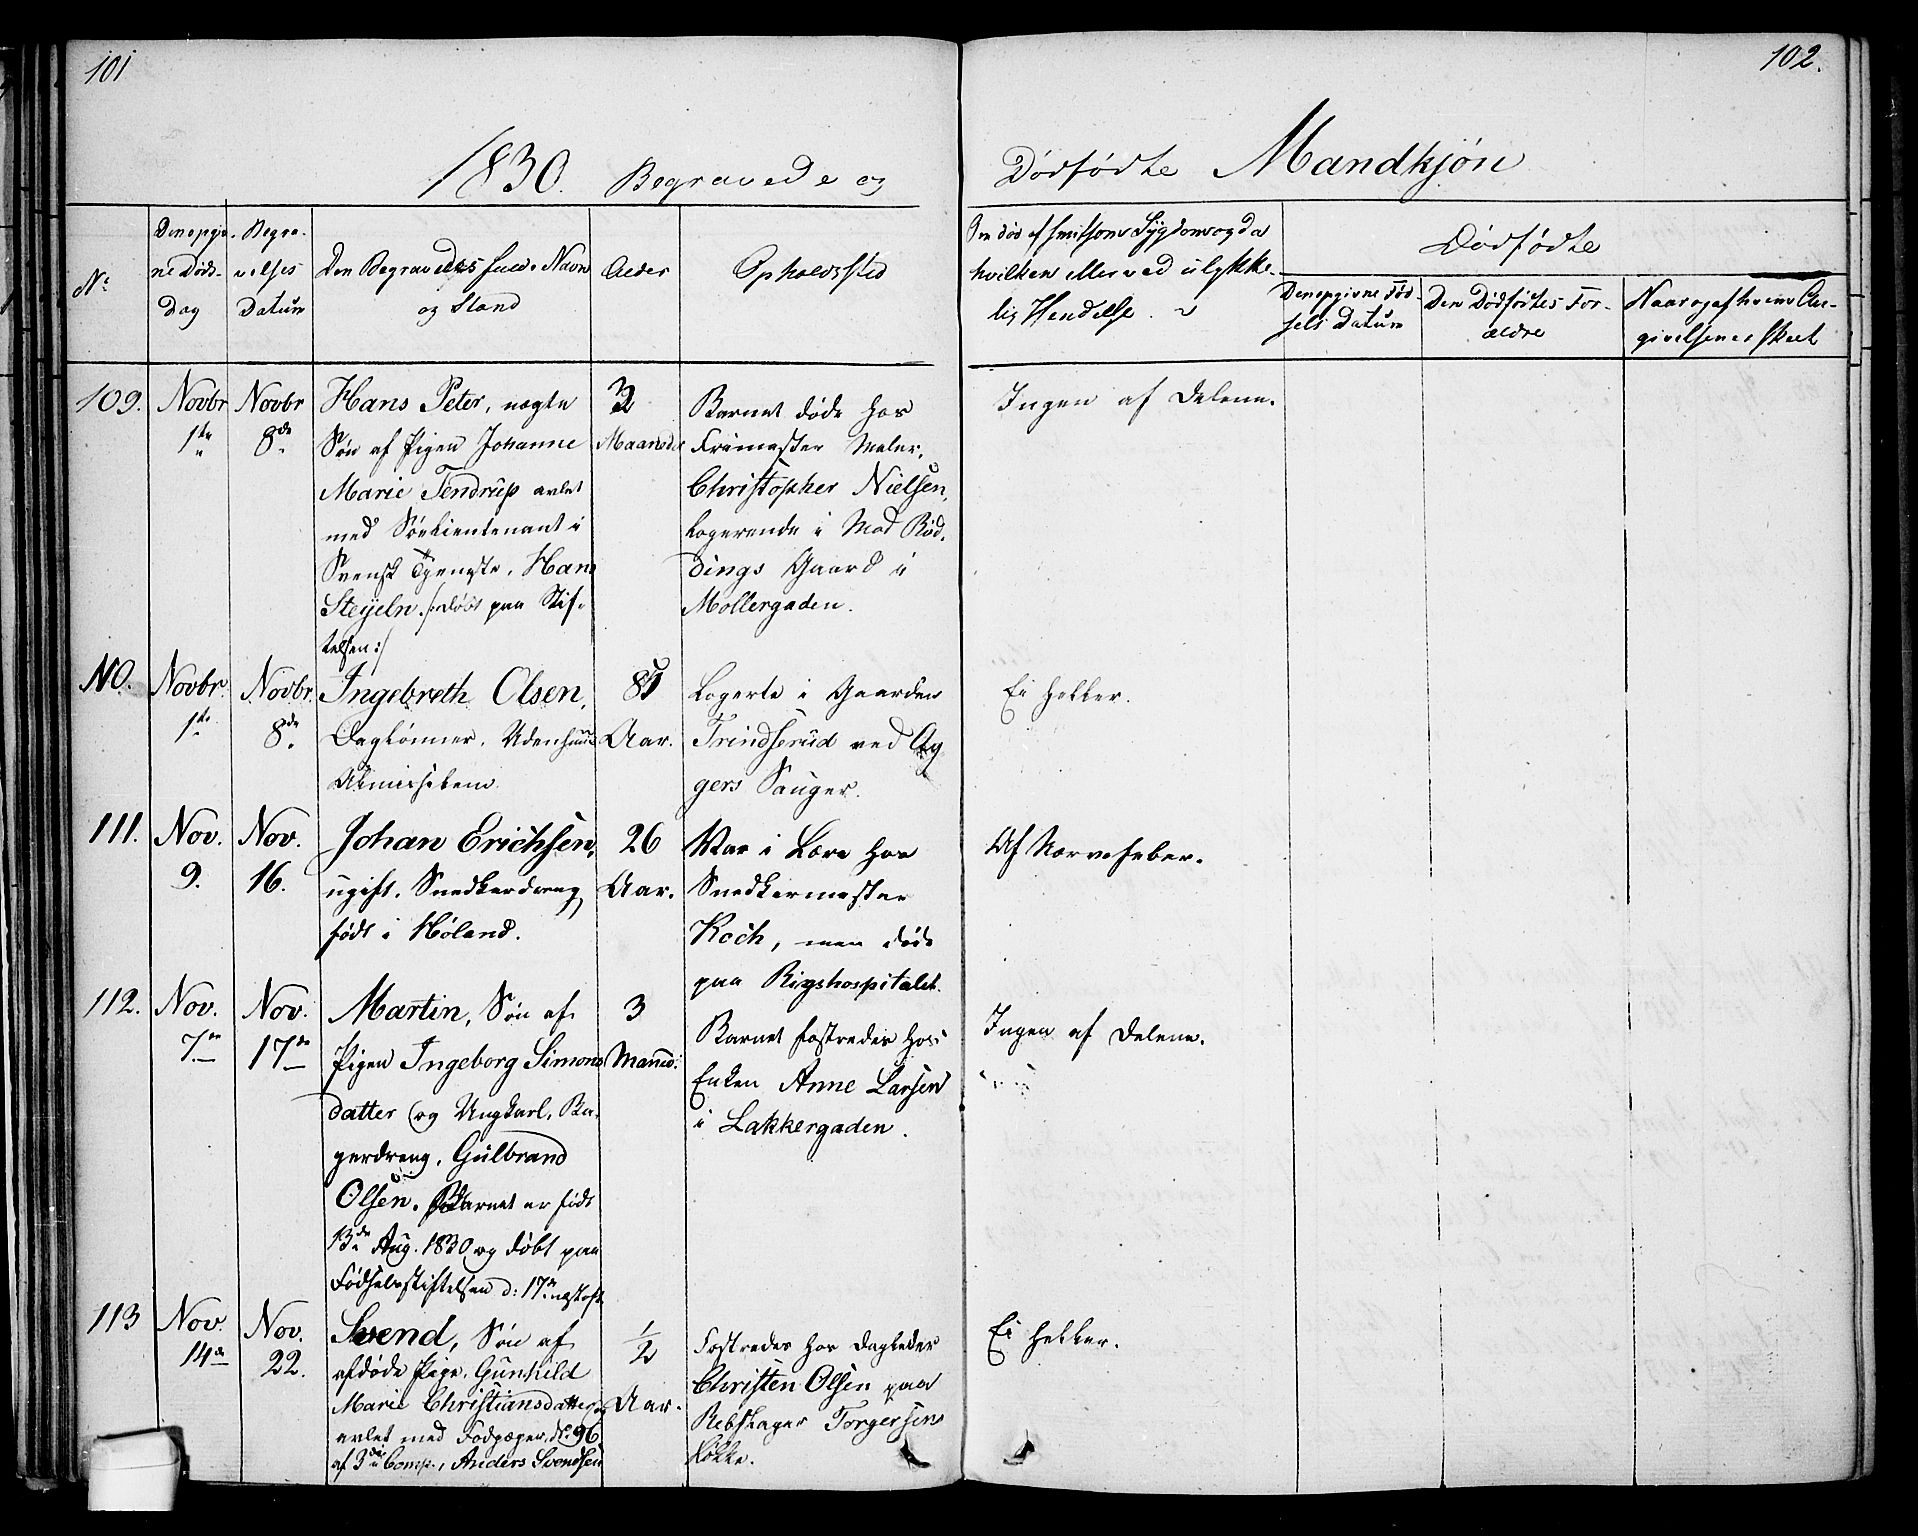 101
102.
1830. Begravede og
Dødfødte Mandkjøn
No
Den opgiv-
ne Døds-
dag
Begra-
velses
Datum
Den Begravedes fulde Navn
og Stand
Alder
Opholdssted
hvilken eller ved ulykke-
lig Hendelse.
Dødfødte
Den opgivne Fød-
sels Datum
Den Dødfødtes For-
ældre
Naar og af hvem An-
givelsen er skeet
109.
Novbr
1te
Novbr
8de
Hans Peter, uægte
Søn af Pigen Johanne
Marie Tendrup avlet
med Søelieutenant i
Svensk Tjeneste, Hans
Steijeln. /: døbt paa Stif-
telsen :/
Maaneder
Barnet døde hos
Frimester Maler,
Christopher Nielsen,
Logerende i Mad Rød-
dings Gaard i
Møllergaden.
Ingen af Delene.
110.
Novbr.
1te
Novbr.
8de
Ingebreth Olsen,
Daglønner,
Aar.
Logerte i Gaarden
Trindserud ved Ag
gers Sauger.
Ei heller.
111.
Nov.
9.
Nov.
16.
Johan Erichsen,
ugift. Snedkerdreng
født i Høland.
26
Aar.
Var i Lære hos
Snedkermester
Koch, men døde
paa Rigshospitalet.
Af Nervefeber.
112.
Nov.
7de
Nov.
17de
Martin, Søn af
Pigen Ingeborg Simons
datter og Ungkarl, Ba-
gerdreng, Gulbrand
Olsen. Barnet er født
13de Aug. 1830 og døbt paa
Fødselsstiftelsen d: 17n næstefter
3
Maaned:
Barnet fostredes hos
Enken Anne Larsen
i Lakkergaden.
Ingen af Delene.
113
Nov.
14de
Nov.
22.
Svend, Søn af
afdøde Pige, Gunhild
Marie Christiansdatter
avlet med Fodjæger, No. 96
af 3die Comp., Anders Svendsen
1/2
Aar.
Fostredes hos Dagleder
Christen Olsen paa
Rebslager Torgersens
Løkke.
Ei heller.